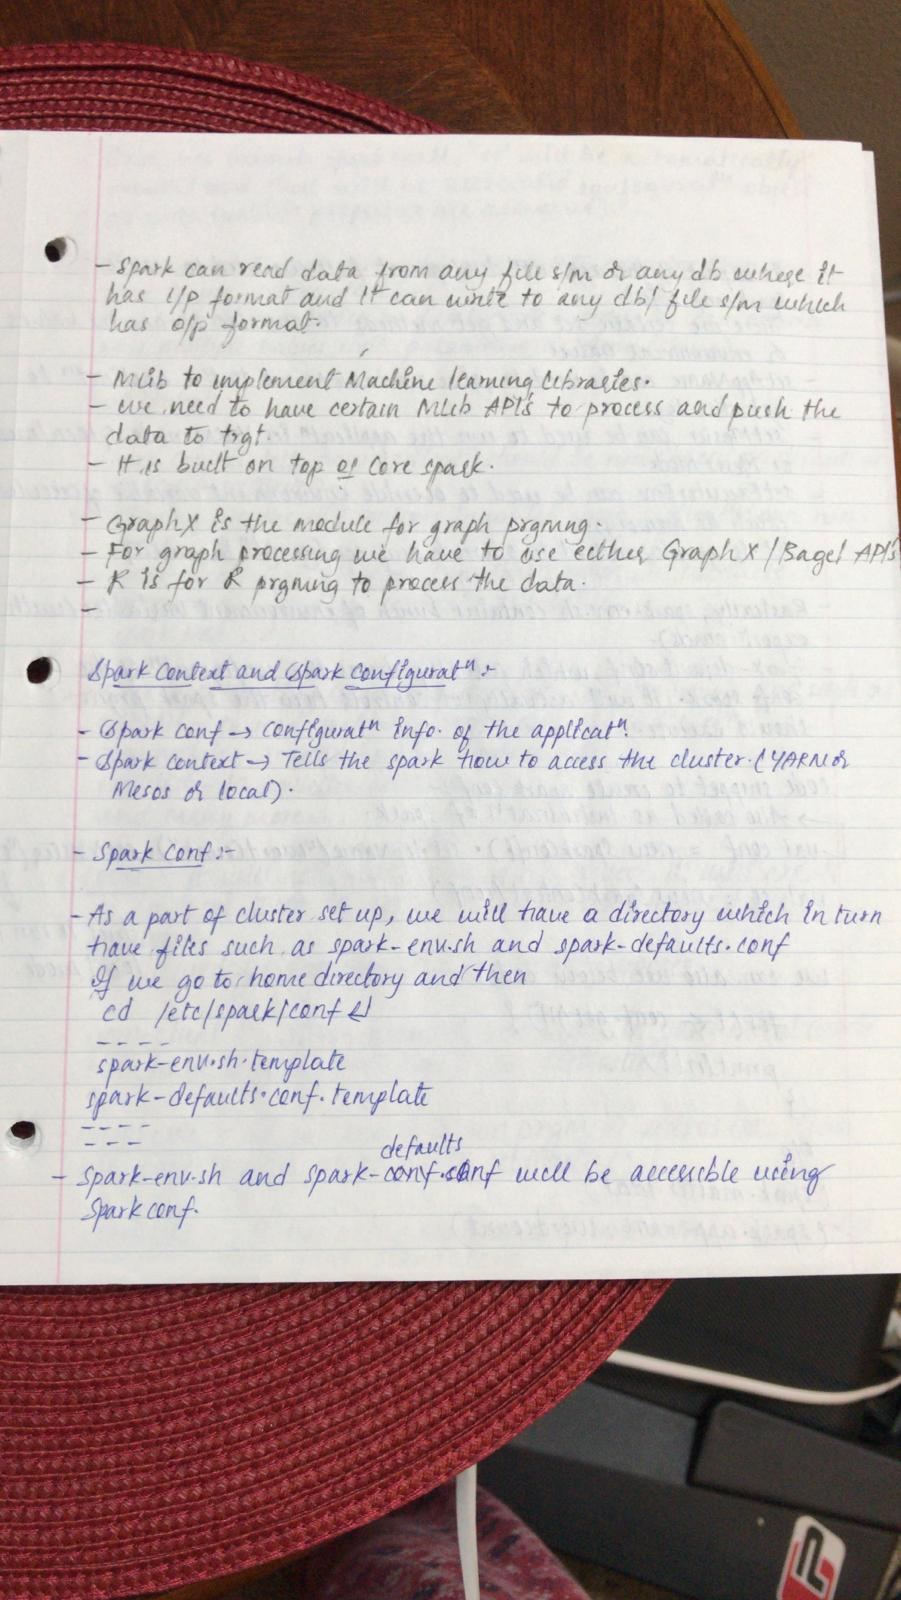 - Spark can read data from any file s/m or any db where it
has i/p format and it can write to any db/ file s/m which
has o/p format.
- MLib to implement Machine learning Libraries.
- we need to have certain MLib API's to process and push the
data to trgt.
- It is built on top of core spark.
- GraphX is the module for graph prgming.
- For graph processing we have to use either GraphX / Bagel API's
- R is for R prgming to process the data.
-
Spark Context and Spark Configuratⁿ :-
- Spark conf → Configuratⁿ info. of the applicatⁿ.
- Spark context → Tells the spark how to access the cluster. (YARN or
Mesos or local).
- Spark Conf :-
- As a part of cluster set up, we will have a directory which in turn
have files such as spark-env.sh and spark-defaults.conf
If we go to home directory and then
cd /etc/spark/conf ↵
- - - -
spark-env.sh.template
spark-defaults.conf.template
- - - -
- - -
defaults
- Spark-env.sh and spark-conf.conf will be accessible using
Spark conf.